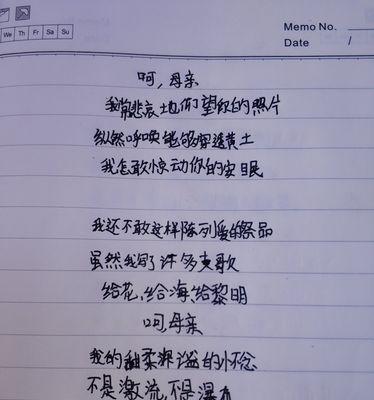 Memo No.
We Th Fr Sa Su
Date /
呵,母亲
我常悲哀地仰望你的照片
纵然呼唤能够穿透黄土
我怎敢惊动你的安眠
我还不敢这样陈列爱的祭品
虽然我写了许多支歌
给花、给海、给黎明
呵,母亲
我的甜柔深谧的怀念
不是激流,不是瀑布